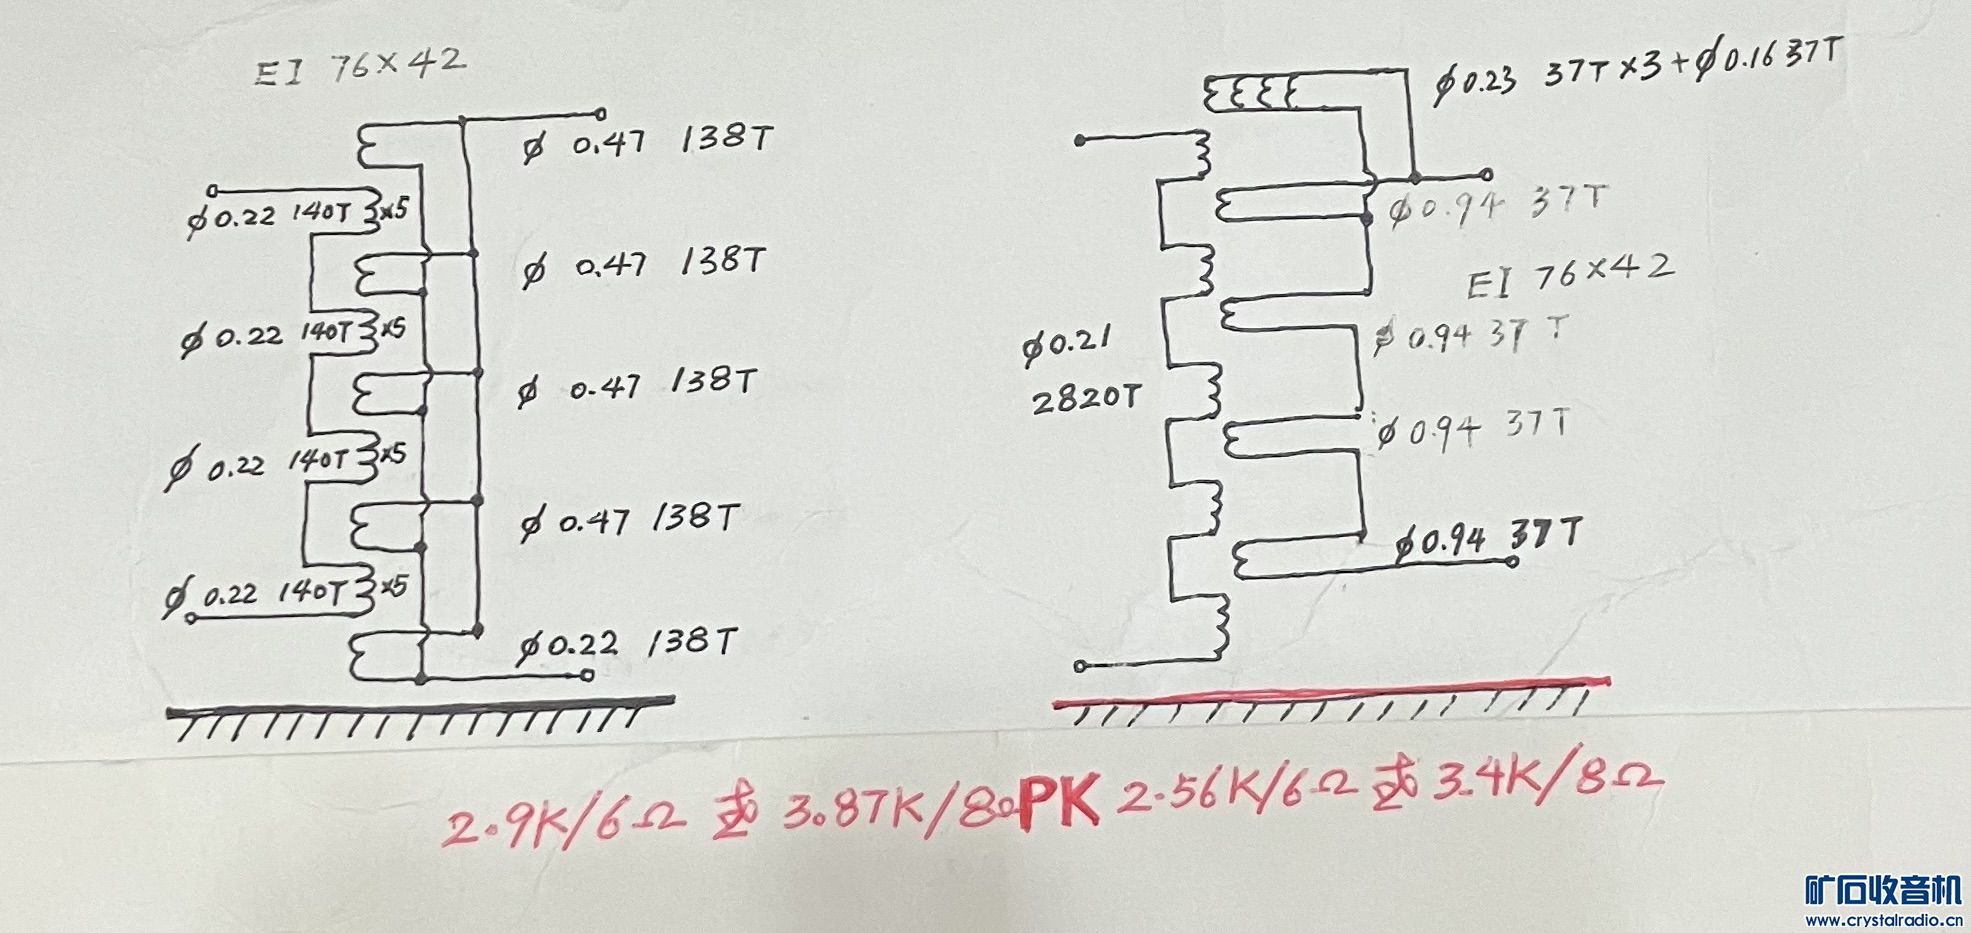 EI 76×42
φ 0.47 138T
φ0.22 140T ×5
φ 0.47 138T
φ0.22 140T ×5
φ 0.47 138T
φ 0.22 140T ×5
φ 0.47 138T
φ 0.22 140T ×5
φ0.22 138T
φ0.23 37T×3+φ0.16 37T
φ0.94 37T
EI 76×42
φ0.21
2820T
φ 0.94 37T
φ 0.94 37T
φ0.94 37T
2.9K/6Ω 或 3.87K/8Ω PK 2.56K/6Ω 或 3.4K/8Ω
矿石收音机
www.crystalradio.cn